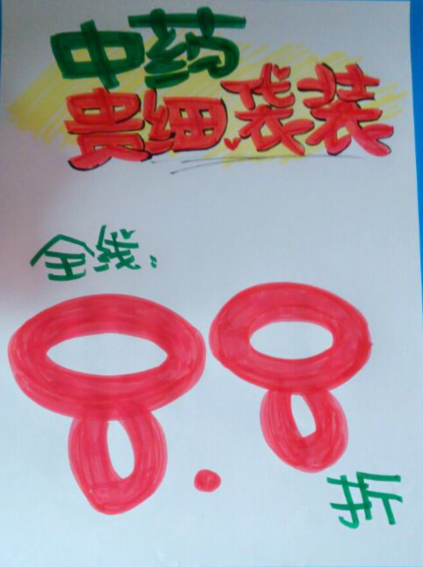 中药
贵细、袋装
全线:
8.8折